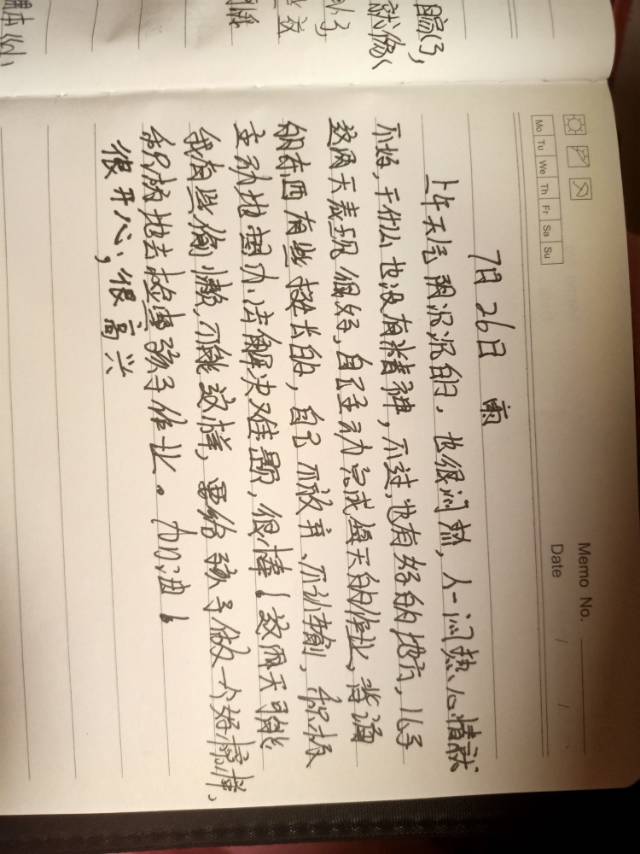 Memo No.
Date / /
Mo Tu We Th Fr Sa Su
7月26日 雨
上午天气阴沉沉的,也很闷热,人一闷热心情就
不好,干什么也没有精神,不过,也有好的地方,儿子
这两天表现很好,自己主动完成每天的作业,背诵
的东西有些挺长的,自己不放弃、不认输,积极
主动地想办法解决难题,很棒!这两天可能
我有些偷懒,不能这样,要给孩子做一个好榜样,
积极地去检查孩子作业。加油!
很开心,很高兴